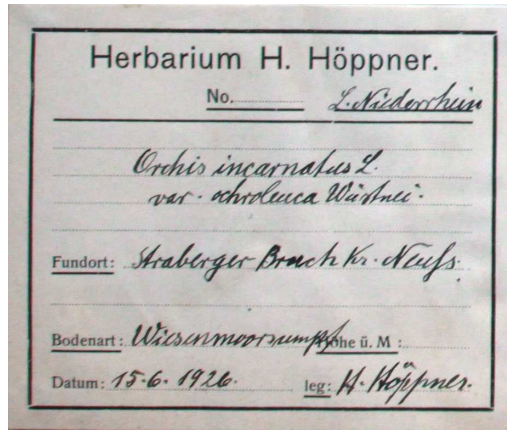 Herbarium H. Höppner.
No. L. Niederrhein
Orchis incarnatus L.
var. ochroleuca Wüstnei.
Fundort: Straberger Bruch Kr. Neuss.
Bodenart: Wiesenmoorsumpf Höhe ü. M:
Datum: 15.6.1926. leg: H. Höppner.